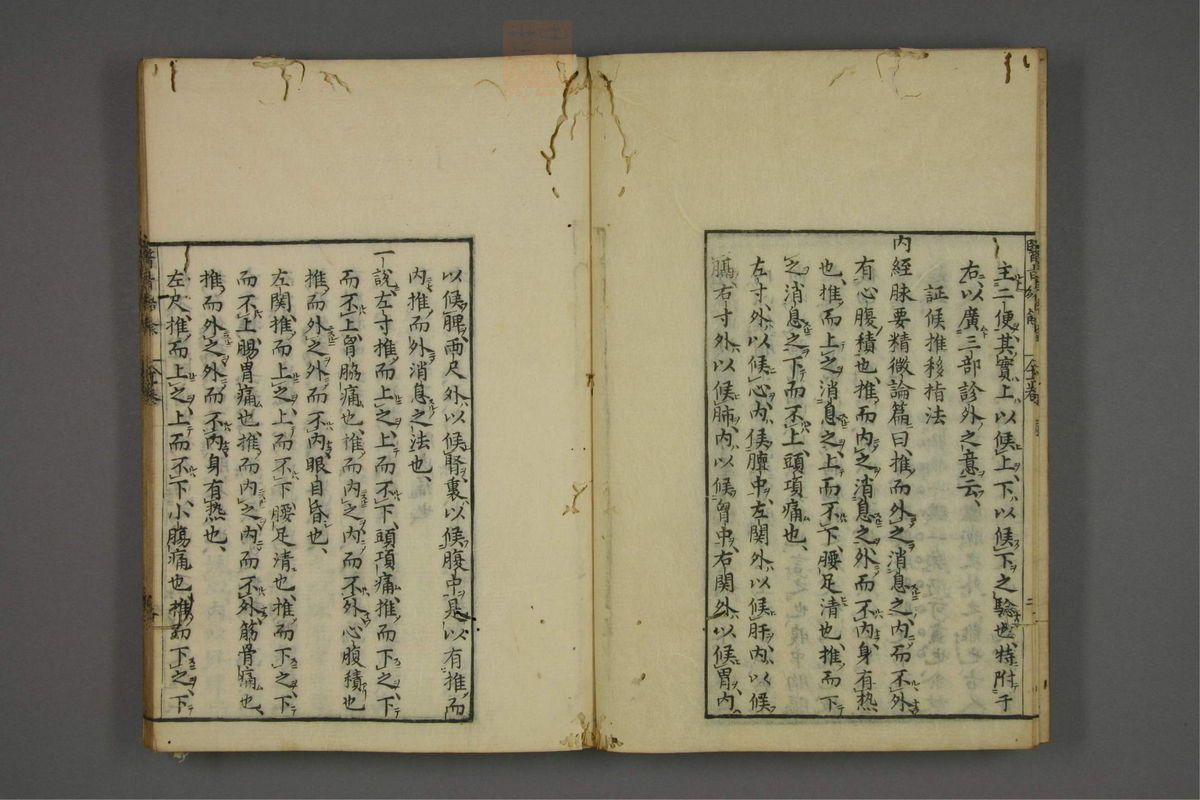 主二便其實上以候上下以候下之驗也特附于
右以廣三部診外之意云
証候推移指法
内經脉要精微論篇曰推而外之消息之内而不外
有心腹積也推而内之消息之外而不内身有熱
也推而上之消息之上而不下腰足清也推而下
之消息之下而不上頭項痛也
左寸外以候心内候膻中左関外以候肝内以候
膈右寸外以候肺内以候胷中右関外以候胃内
以候脾両尺外以候腎裏以候腹中是以有推而
内推而外消息之法也
一説左寸推而上之上而不下頭項痛推而下之下
而不上胷脇痛也推而内之内而不外心腹積也
推而外之外而不内眼目昏也
左関推而上之上而不下腰足清也推而下之下
而不上腸胃痛也推而内之内而不外筋骨痛也
推而外之外而不内身有熱也
左尺推而上之上而不下小腸痛也推而下之下